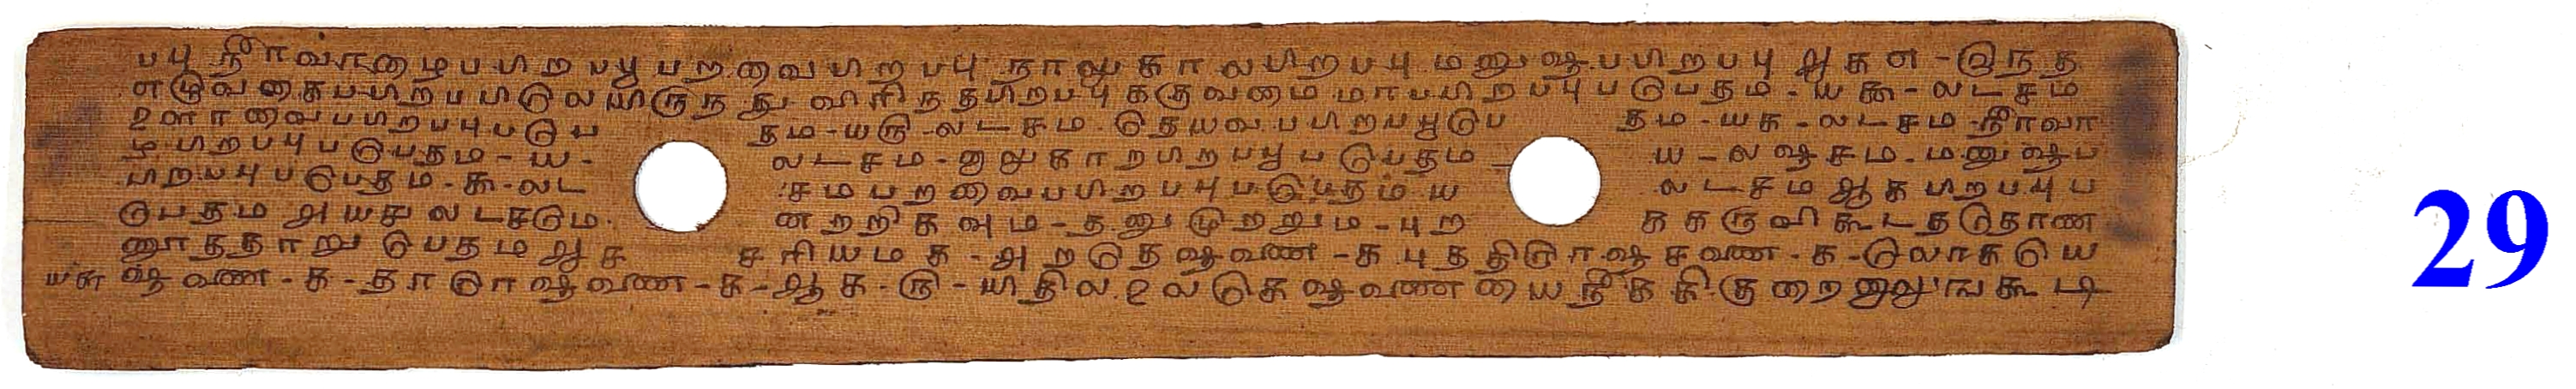 பபு நீாவாழைபபிறபபு பறவைபிறபபு நாலுகாலபிறபபு மனுஷபபிறபபு ஆக எ - இந்த
எழுவகைபபிறபபிலெயிருநது விரிநதபிறபபு கருவமைமாபபிறபபு பெதம - ய௯ - லடசம
உளாவைபபிறபபு பெ தம - ய௫ - லடசம தெயவபபிறபபு பெ தம - ய௧ - லடசம நீாவா
ழபிறபபு பெதம - ய - லடசம - னாலுகாறபிறபபு பெதம - ய - லஷசம - மனுஷப
பிறபபு பெதம - ௯ - லட சம பறவைபபிறபபு பெதம ய லடசம ஆகபிறபபு ப
பெதம அயச லடசமெ னறறிகவும - தனுமுறறும - புற க கருவிகூடததொண
ணூததாறு பெதம ஆக சரியம க - அறதெஷவண - க புததிரொஷசவண - க - லொகெய
ஷவண - க - தாரொஷவண - க - ஆக - ௫ - யிதில உலகெஷவணையை நீககி குறைனாலுஙகூடி
29